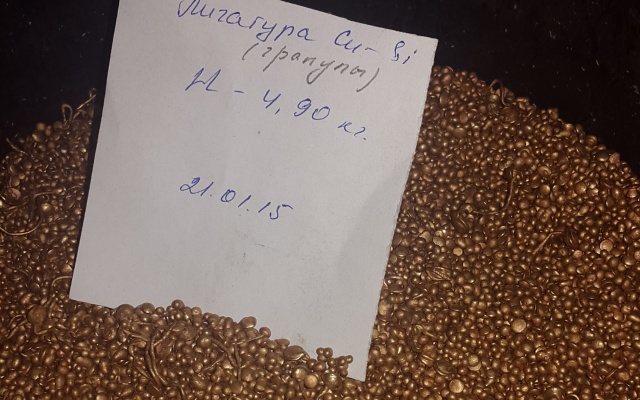 Лигатура Cu-Si
(гранулы)
И - 4,90 кг.
21.01.15